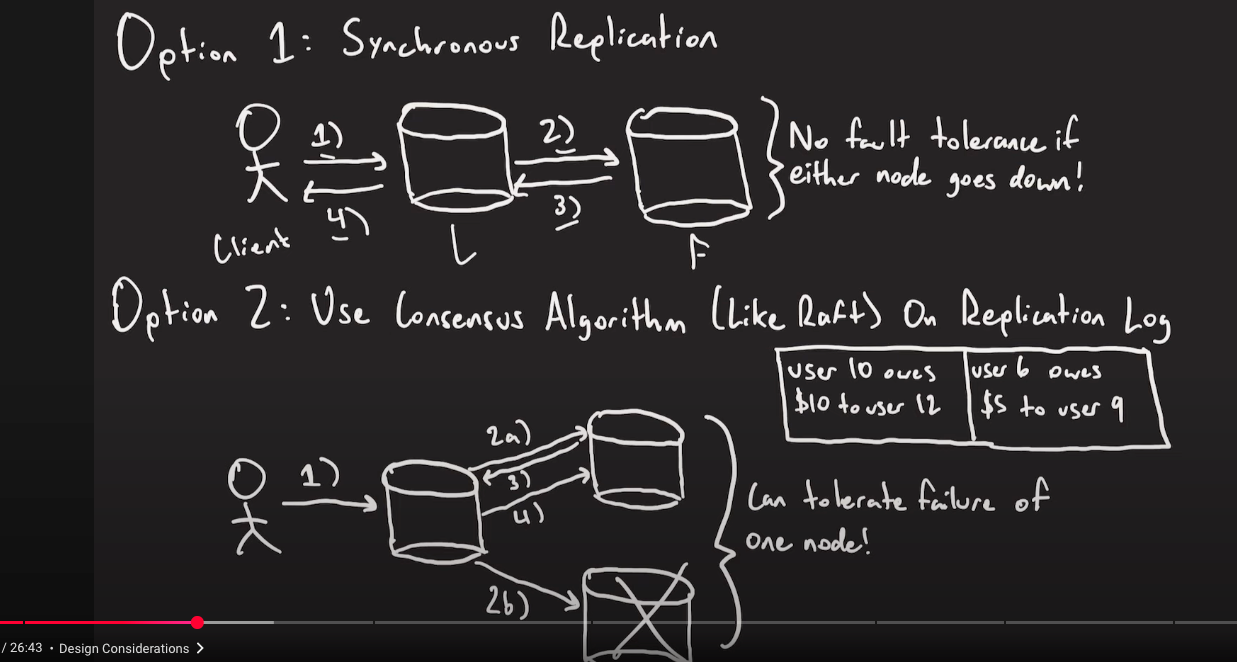 Option 1: Synchronous Replication
1)
2)
No fault tolerance if
either node goes down!
4)
3)
Client
L
F
Option 2: Use Consensus Algorithm (Like Raft) On Replication Log
user 10 owes
$10 to user 12
user 6 owes
$5 to user 9
2a)
1)
3)
4)
Can tolerate failure of
one node!
2b)
/ 26:43 • Design Considerations >